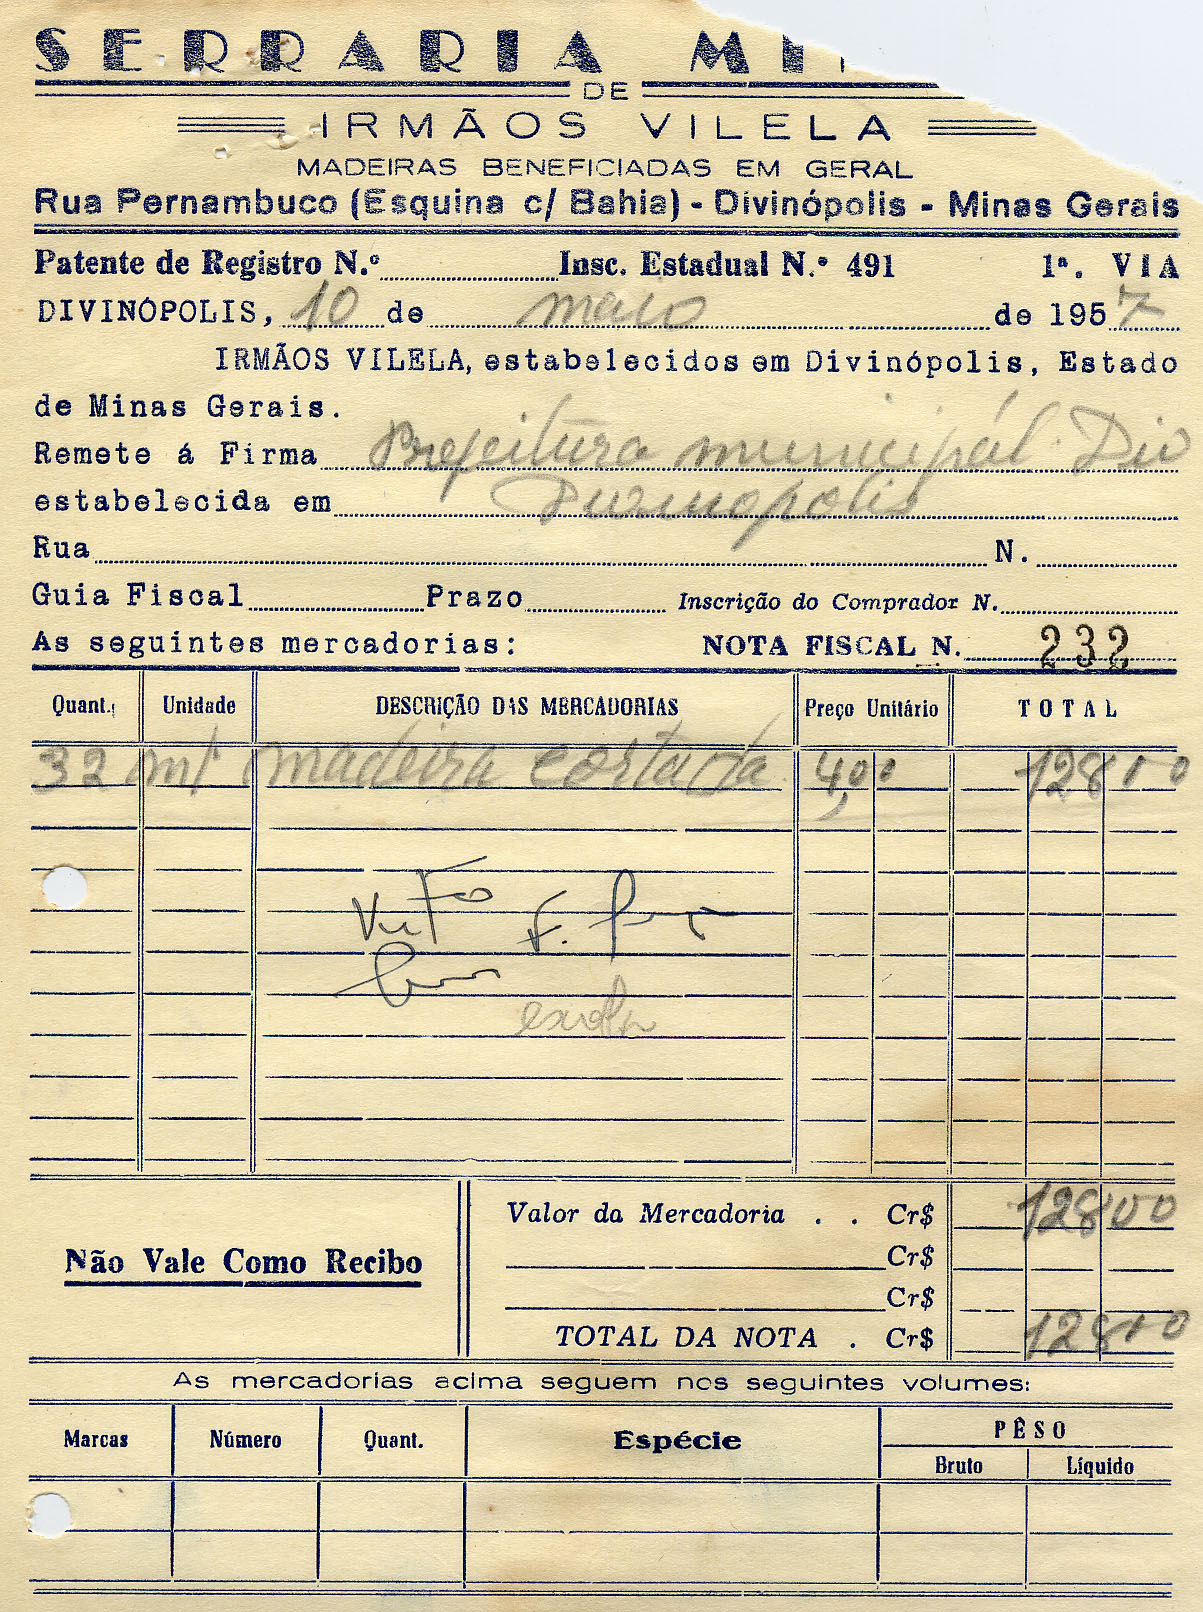 SERRARIA MI
DE
IRMÃOS VILELA
MADEIRAS BENEFICIADAS EM GERAL
Rua Pernambuco (Esquina c/ Bahia) - Divinópolis - Minas Gerais
Patente de Registro N.º Insc. Estadual N.º 491 1ª. VIA
DIVINÓPOLIS, 10 de maio de 1957
IRMÃOS VILELA, estabelecidos em Divinópolis, Estado
de Minas Gerais.
Remete á Firma Prefeitura municipál. Div
estabelecida em Divinopolis
Rua N.
Guia Fiscal Prazo Inscrição do Comprador N.
As seguintes mercadorias: NOTA FISCAL N. 232
Quant. Unidade DESCRIÇÃO DAS MERCADORIAS Preço Unitário TOTAL
32 m/ madeira cortada 4,00 128 00
Visto F.
Não Vale Como Recibo
Valor da Mercadoria . . Cr$ 128 00
Cr$
Cr$
TOTAL DA NOTA . Cr$ 128 00
As mercadorias acima seguem nos seguintes volumes:
Marcas Número Quant. Espécie PÊSO
Bruto Líquido